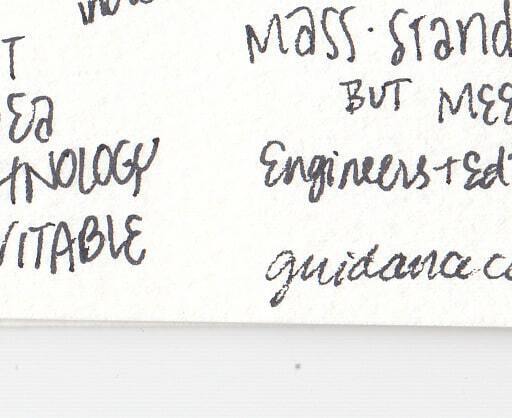 T
Ea
HNOLOGY
VITABLE
Mass. Stand
BUT MEE
Engineers + Ed
guidance c